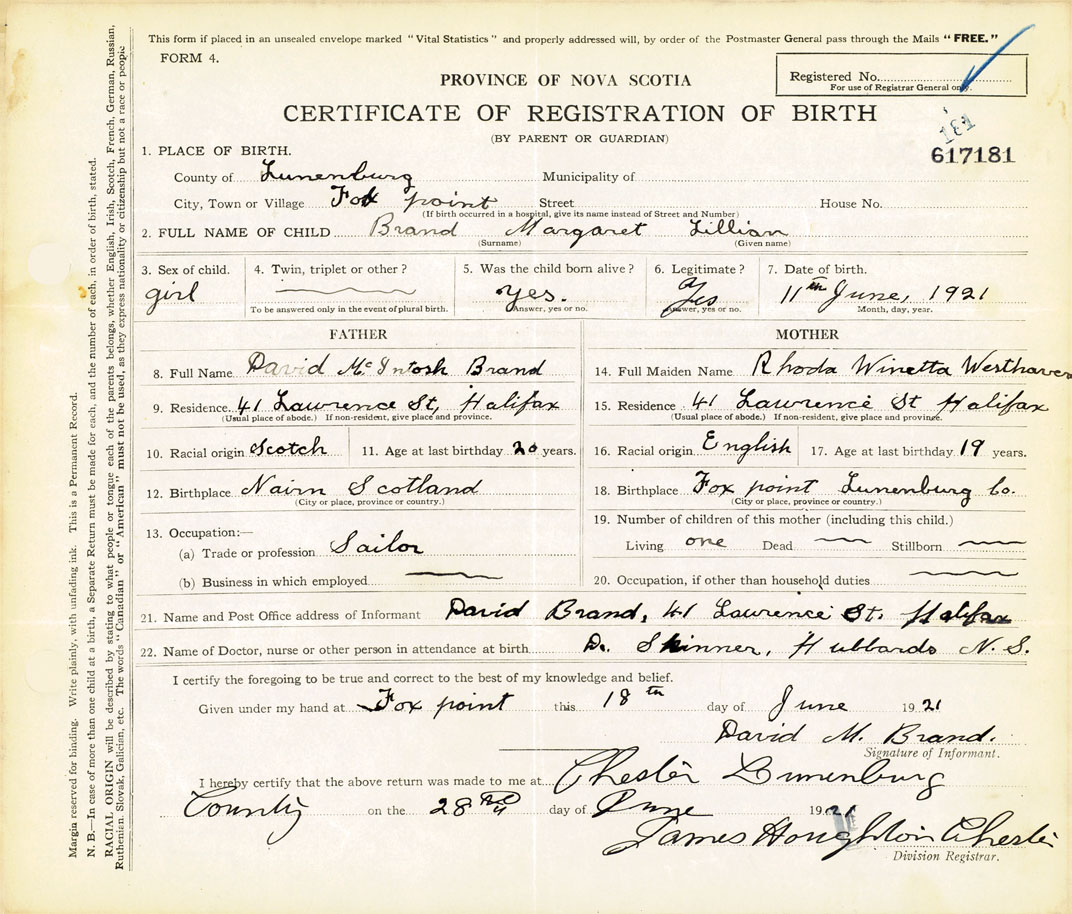 This form if placed in an unsealed envelope marked "Vital Statistics" and properly addressed will, by order of the Postmaster General pass through the Mails "FREE."
FORM 4.
Registered No.
For use of Registrar General only.
PROVINCE OF NOVA SCOTIA
CERTIFICATE OF REGISTRATION OF BIRTH
(BY PARENT OR GUARDIAN)
181
617181
1. PLACE OF BIRTH.
County of Lunenburg Municipality of
City, Town or Village Fox point Street House No.
(If birth occurred in a hospital, give its name instead of Street and Number)
2. FULL NAME OF CHILD Brand Margaret Lillian
(Surname) (Given name)
3. Sex of child. 4. Twin, triplet or other? 5. Was the child born alive? 6. Legitimate? 7. Date of birth.
girl yes. Yes 11th June, 1921
To be answered only in the event of plural birth. Answer, yes or no. Answer, yes or no. Month, day, year.
FATHER
8. Full Name David McIntosh Brand
9. Residence 41 Lawrence St, Halifax
(Usual place of abode.) If non-resident, give place and province.
10. Racial origin Scotch 11. Age at last birthday 20 years.
12. Birthplace Nairn Scotland
(City or place, province or country.)
13. Occupation:—
(a) Trade or profession Sailor
(b) Business in which employed
MOTHER
14. Full Maiden Name Rhoda Winetta Westhaver
15. Residence 41 Lawrence St Halifax
(Usual place of abode.) If non-resident, give place and province.
16. Racial origin English 17. Age at last birthday 19 years.
18. Birthplace Fox point Lunenburg Co.
(City or place, province or country.)
19. Number of children of this mother (including this child.)
Living one Dead Stillborn
20. Occupation, if other than household duties
21. Name and Post Office address of Informant David Brand, 41 Lawrence St. Halifax
22. Name of Doctor, nurse or other person in attendance at birth Dr. Skinner, Hubbards N. S.
I certify the foregoing to be true and correct to the best of my knowledge and belief.
Given under my hand at Fox point this 18th day of June 1921
David M. Brand.
Signature of Informant.
I hereby certify that the above return was made to me at Chester Lunenburg
County on the 28 day of June 1921
James Houghton Chester
Division Registrar.
Margin reserved for binding. Write plainly, with unfading ink. This is a Permanent Record.
N. B.—In case of more than one child at a birth, a Separate Return must be made for each, and the number of each, in order of birth, stated.
RACIAL ORIGIN will be described by stating to what people or tongue each of the parents belongs, whether English, Irish, Scotch, French, German, Russian,
Ruthenian, Slovak, Galician, etc. The words "Canadian" or "American" must not be used, as they express nationality or citizenship but not a race or people